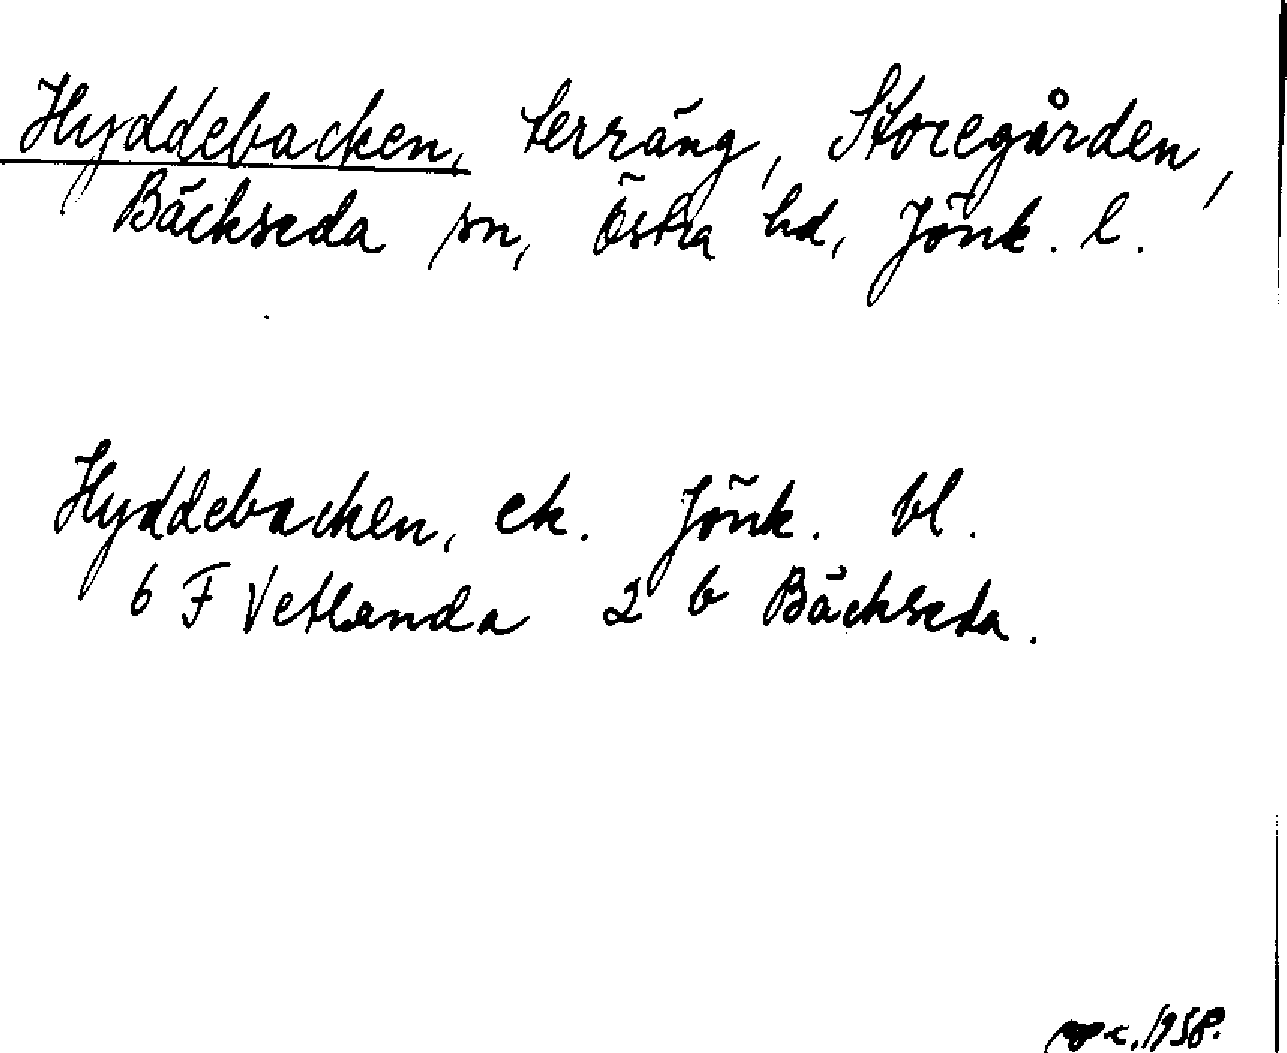 Hyddebacken, terräng, Storegården,
Bäckseda sn, Östra hd, Jönk. l.
Hyddebacken, ek. Jönk. bl.
6 F Vetlanda 2 b Bäckseda.
1958.